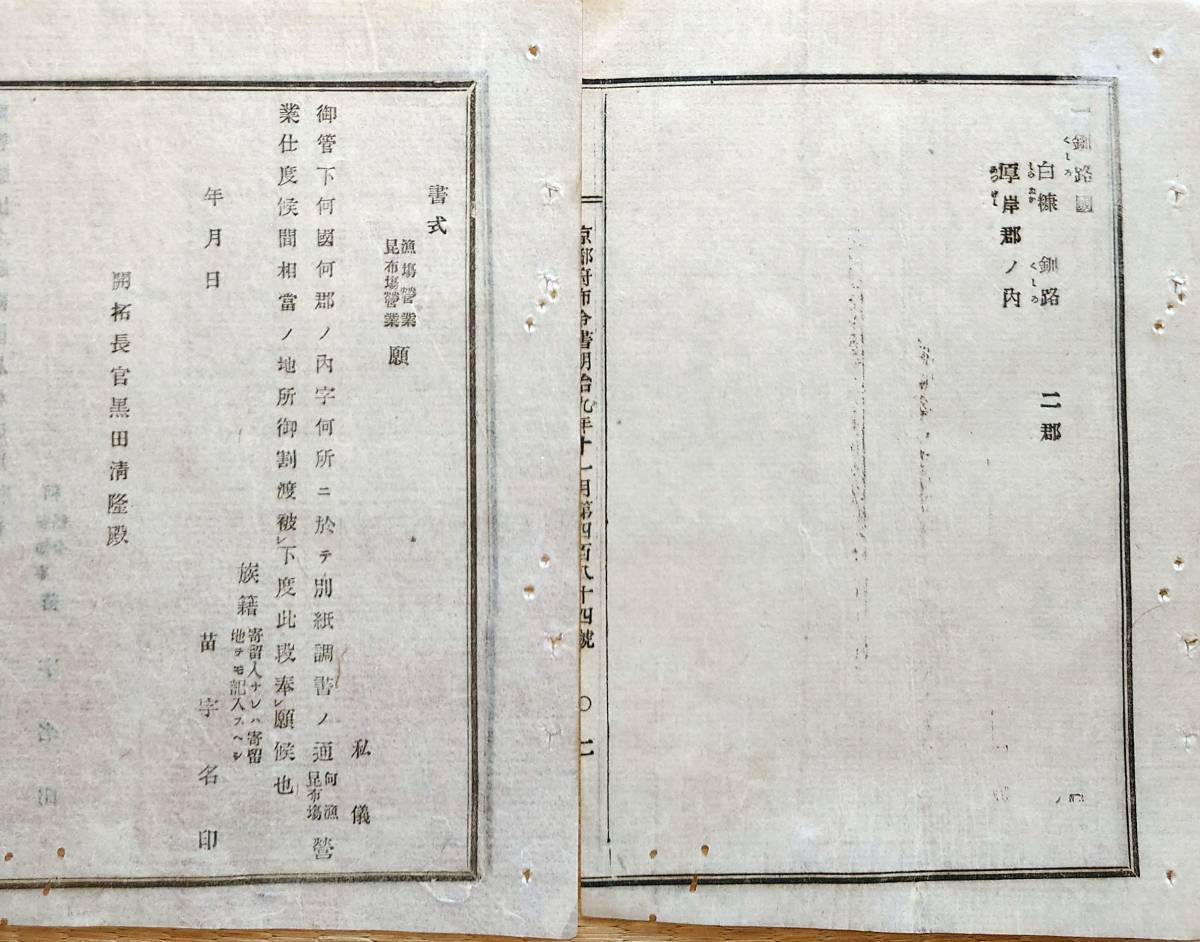 一釧路國
くしろ
白糠 釧路 二郡
しらぬか くしろ
厚岸郡ノ內
あつけし
京都府布令書明治九年十一月第四百八十四號 〇 二
書式
漁塲營業
昆布塲營業 願
私儀
御管下何國何郡ノ內字何所ニ於テ別紙調書ノ通何漁昆布塲營
業仕度候間相當ノ地所御割渡被レ下度此段奉レ願候也
族籍 寄留人ナレハ寄留
地ヲモ記入スヘシ
年月日 苗字名印
開拓長官黑田淸隆殿